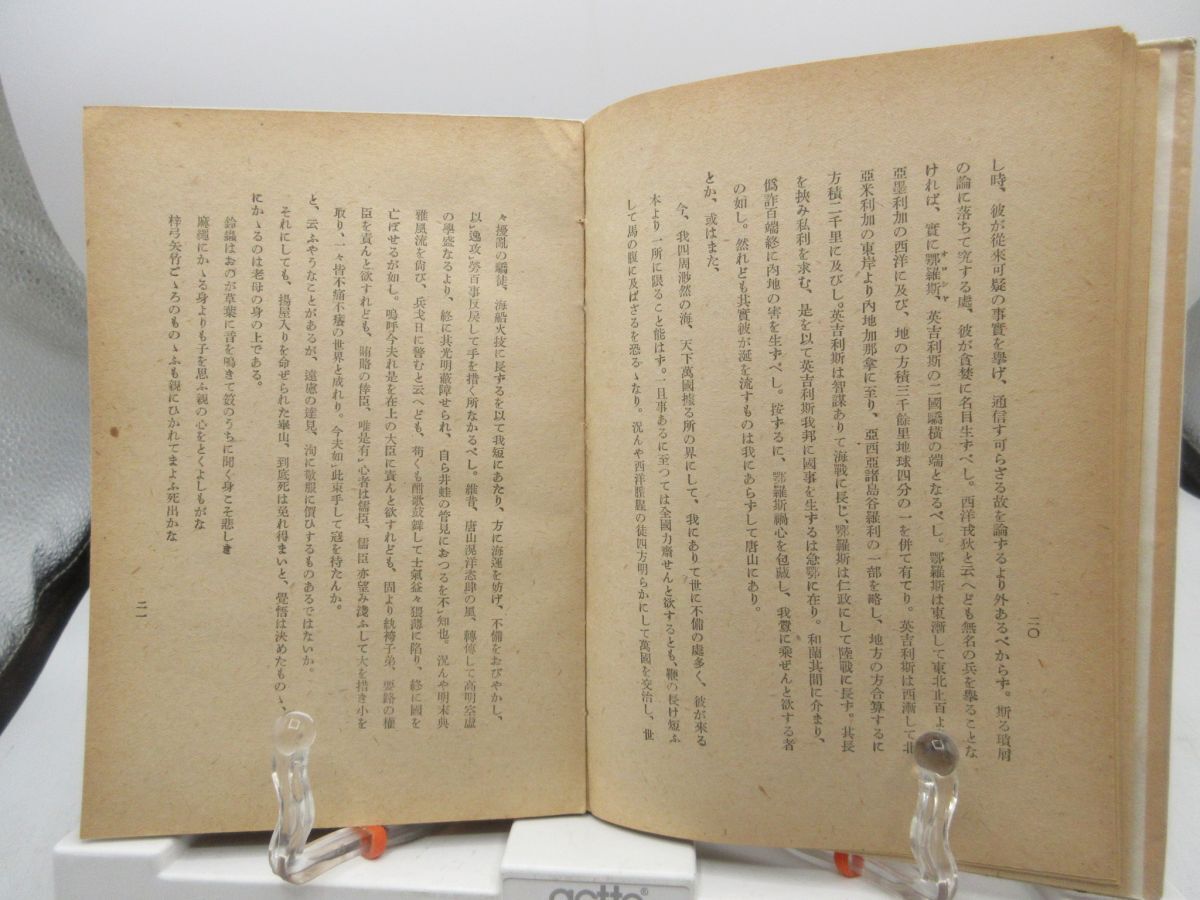 し時、彼が從來可疑の事實を擧げ、通信す可らざる故を論ずるより外あるべからず。斯る瑣屑
の論に落ちて究する處、彼が貪婪に名目生ずべし。西洋戎狄と云へども無名の兵を擧ることな
ければ、實に鄂羅斯、英吉利斯の二國驕横の端となるべし。鄂羅斯は東漸して東北止百
オロシヤ
亞墨利加の西洋に及び、地の方積三千餘里地球四分の一を併て有てり。英吉利斯は西漸して北
亞米利加の東岸より內地加那拿に至り、亞西亞諸島谷羅利の一部を略し、地方の方合算するに
方積二千里に及びし。英吉利斯は智謀ありて海戰に長じ、鄂羅斯は仁政にして陸戰に長ず。其長
を挾み私利を求む、是を以て英吉利斯我邦に國事を生ずるは急鄂に在り。和蘭其間に介まり、
僞詐百端終に內地の害を生ずべし。按ずるに、鄂羅斯禍心を包藏し、我釁に乘ぜんと欲する者
の如し。然れども其實彼が涎を流すものは我にあらずして唐山にあり。
とか、或はまた、
今、我四周渺然の海、天下萬國據る所の界にして、我にありて世に不備の處多く、彼が來る
本より一所に限ること能はず。一旦事あるに至つては全國力齋せんと欲するとも、鞭の長け短ふ
して馬の腹に及ばざるを恐るゝなり。況んや西洋膻腥の徒四方明らかにして萬國を交治し、世
二〇
々擾亂の驕徒、海船火技に長ずるを以て我短にあたり、方に海運を妨げ、不備をおびやかし、
以逸攻勞百事反戾して手を措く所なかるべし。維昔、唐山滉洋恣肆の風、轉傳して高明空虛
の學盛なるより、終に其光明蔽障せられ、自ら井蛙の管見におつるを不知也。況んや明末典
雅風流を尙び、兵戈日に警むと云へども、苟くも酣歌鼓舞して士氣益々猥薄に陷り、終に國を
亡ぼせるが如し。嗚呼今夫れ是を在上の大臣に責んと欲すれども、固より紈袴子弟、要路の權
臣を責んと欲すれども、賄賂の倖臣、唯是有心者は儒臣、儒臣亦望み淺ふして大を措き小を
取り、一々皆不痛不癢の世界と成れり。今夫如此束手して寇を待たんか。
と、云ふやうなことがあるが、遠慮の達見、洵に敬服に價ひするものあるではないか。
それにしても、揚屋入りを命ぜられた崋山、到底死は免れ得まいと、覺悟は決めたものゝ、
にかゝるのは老母の身の上である。
鈴蟲はおのが草葉に音を鳴きて篏のうちに聞く身こそ悲しき
麻繩にかゝる身よりも子を思ふ親の心をとくよしもがな
梓弓矢竹ごゝろのものゝふも親にひかれてまよふ死出かな
二一